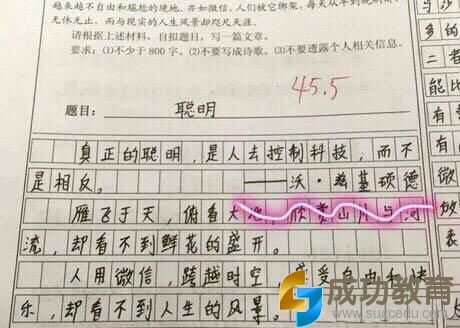 越来越不自由和尴尬的境地。亦如微信,人们被它绑架,每天从早到晚刷屏
无休无止,而与现实的人生风景却咫尺天涯。
请根据上述材料,自拟题目,写一篇文章。
要求:(1)不少于800字。(2)不要写成诗歌。(3)不要透露个人相关信息。
45.5
题目: 聪明
真正的聪明,是人去控制科技,而不
是相反。 ——沃·兹基硕德
雁飞于天,俯看大地,欣赏山川与河
流,却看不到鲜花的盛开。
人用微信,跨越时空,感受自由和快
乐,却看不到人生的风景。
与沙
多的
二者
能比
有
有
微
放
表
成功教育
www.succedu.com